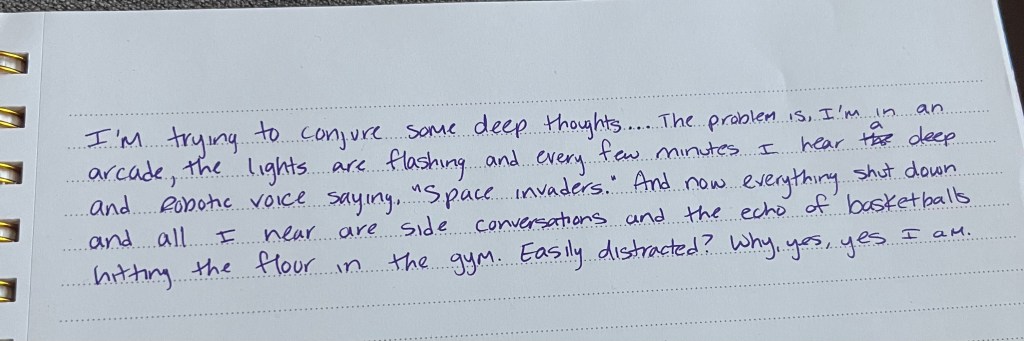 I'm trying to conjure some deep thoughts... The problem is, I'm in an
arcade, the lights are flashing and every few minutes I hear a deep
and robotic voice saying, "Space invaders." And now everything shut down
and all I hear are side conversations and the echo of basketballs
hitting the flour in the gym. Easily distracted? Why, yes, yes I am.